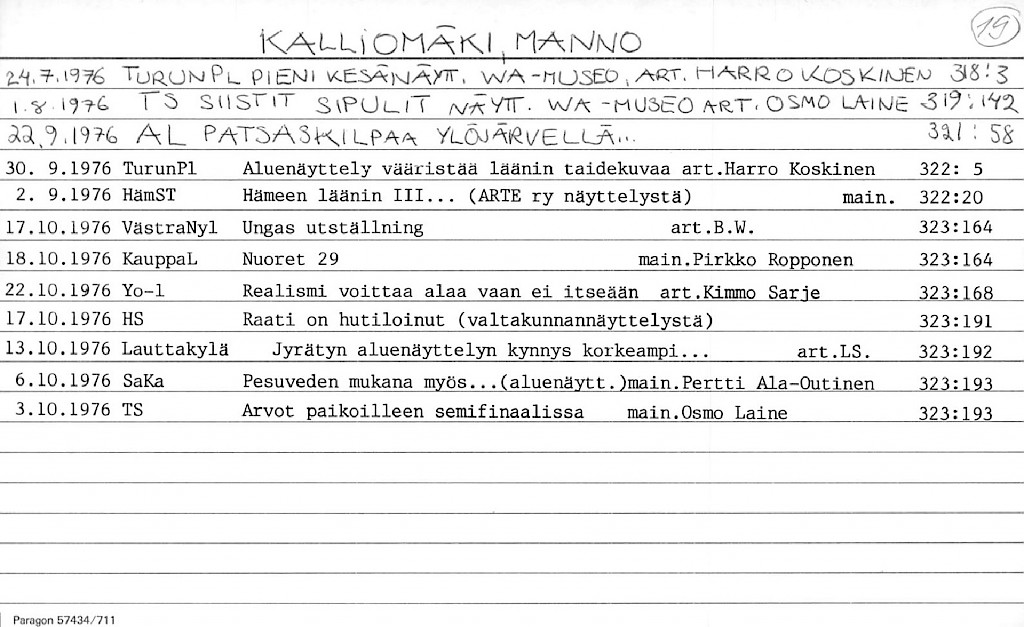 19
KALLIOMÄKI, MANNO
24.7.1976 TURUNPL PIENI KESÄNÄYTT. WA-MUSEO, ART. HARRO KOSKINEN 318:3
1.8.1976 TS SIISTIT SIPULIT NÄYTT. WA-MUSEO ART. OSMO LAINE 319:142
22.9.1976 AL PATSASKILPAA YLÖJÄRVELLÄ... 321:58
30. 9.1976 TurunPl Aluenäyttely vääristää läänin taidekuvaa art.Harro Koskinen 322: 5
2. 9.1976 HämST Hämeen läänin III... (ARTE ry näyttelystä) main. 322:20
17.10.1976 VästraNyl Ungas utställning art.B.W. 323:164
18.10.1976 KauppaL Nuoret 29 main.Pirkko Ropponen 323:164
22.10.1976 Yo-l Realismi voittaa alaa vaan ei itseään art.Kimmo Sarje 323:168
17.10.1976 HS Raati on hutiloinut (valtakunnannäyttelystä) 323:191
13.10.1976 Lauttakylä Jyrätyn aluenäyttelyn kynnys korkeampi... art.LS. 323:192
6.10.1976 SaKa Pesuveden mukana myös...(aluenäytt.)main.Pertti Ala-Outinen 323:193
3.10.1976 TS Arvot paikoilleen semifinaalissa main.Osmo Laine 323:193
Paragon 57434/711